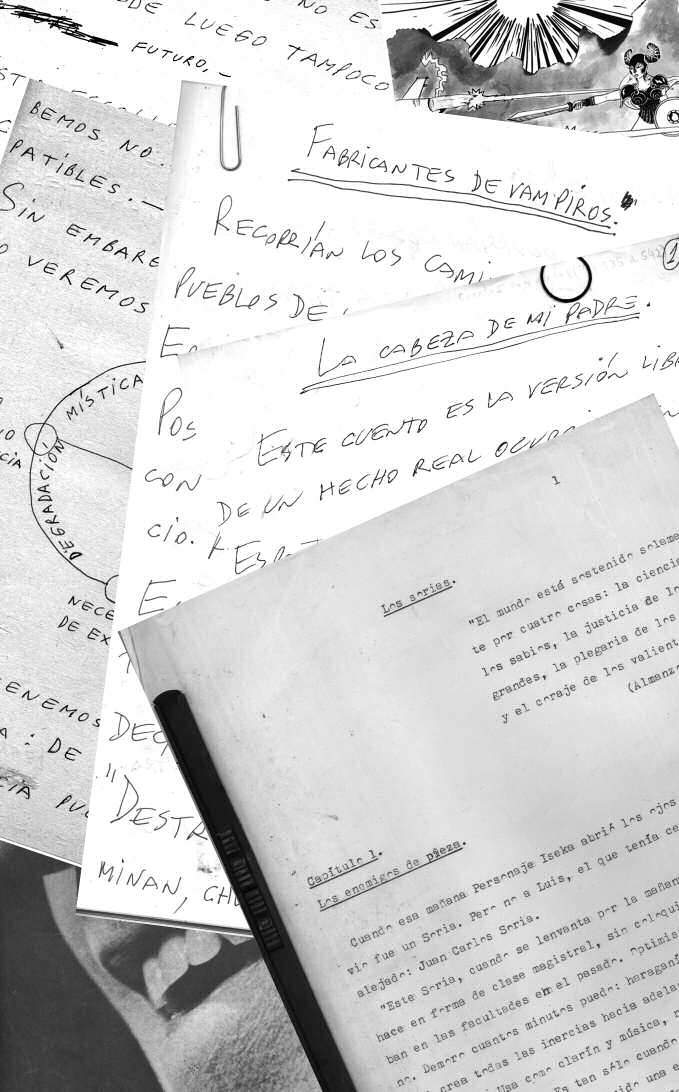 NO ES
DE LUEGO TAMPOCO
FUTURO.-
BEMOS NO.
PATIBLES.-
SIN EMBARG
VEREMOS
MÍSTICA
DEGRADACIÓN
CIA
NECE
DE EX
ENEMOS
A: DE
CIA PU
FABRICANTES DE VAMPIROS.
RECORRÍAN LOS CAMI
PUEBLOS DE
E
POS
CON
CIO.
E
DEC
"DESTR
MINAN, CHU
1
LA CABEZA DE MI PADRE.
ESTE CUENTO ES LA VERSIÓN LIBR
DE UN HECHO REAL OCURR
ESP
1
Los sorias.
"El mundo está sostenido solamen
te por cuatro cosas: la ciencia
los sabios, la justicia de lo
grandes, la plegaria de los
y el coraje de los valient
(Almanzo
Capítulo 1.
Los enemigos de pieza.
Cuando esa mañana Personaje Iseka abrió los ojos
vio fue un Soria. Pero no a Luis, el que tenía ce
alejado: Juan Carlos Soria.
"Este Soria, cuando se lenvanta por la mañan
hace en forma de clase magistral, sin coloqui
ban en las facultades en el pasado. Optimis
no. Demora cuantos minutos puede: haraganí
crea todas las inercias hacia adela
Usa como clarín y música, r
Es tan sólo cuando
ido una e